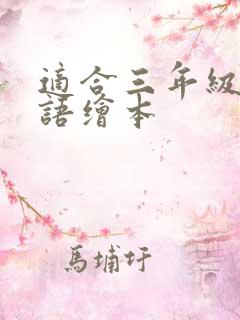 適合三年級
語繪本
馬埔圩